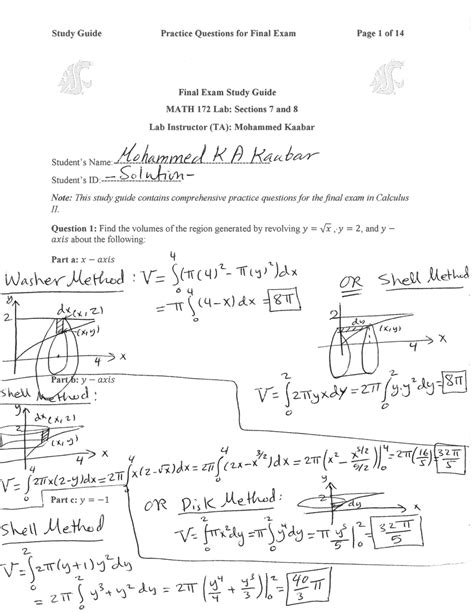 Study Guide Practice Questions for Final Exam Page 1 of 14
Final Exam Study Guide
MATH 172 Lab: Sections 7 and 8
Lab Instructor (TA): Mohammed Kaabar
Student's Name: Mohammed K A Kaabar
Student's ID: -Solution-
Note: This study guide contains comprehensive practice questions for the final exam in Calculus
II.
Question 1: Find the volumes of the region generated by revolving y = √x , y = 2, and y –
axis about the following:
Part a: x – axis
Washer Method: V = ∫₀⁴ (π(4)² - π(y)²)dx
= π ∫₀⁴ (4-x) dx = 8π
OR Shell Method
y
2
dx (x,2)
(x,y)
4
x
2
dy
(x,y)
4
x
V = ∫₀² 2πyxdy = 2π ∫₀² y·y² dy = 8π
Part b: y – axis
Shell Method:
y
2
dx (x,2)
(x,y)
4
x
V = ∫₀⁴ 2πx(2-y)dx = 2π ∫₀⁴ x(2-√x)dx = 2π ∫₀⁴ (2x - x^(3/2))dx = 2π(x² - x^(5/2)/(5/2))|₀⁴ = 2π(16/5) = 32π/5
OR Disk Method:
y
2
dy
x
V = ∫₀² πx²dy = π ∫₀² y⁴dy = π y⁵/5 |₀² = 32π/5
Part c: y = –1
Shell Method
V = ∫₀² 2π(y+1)y²dy
= 2π ∫₀² y³+y² dy = 2π (y⁴/4 + y³/3)|₀² = 40/3 π